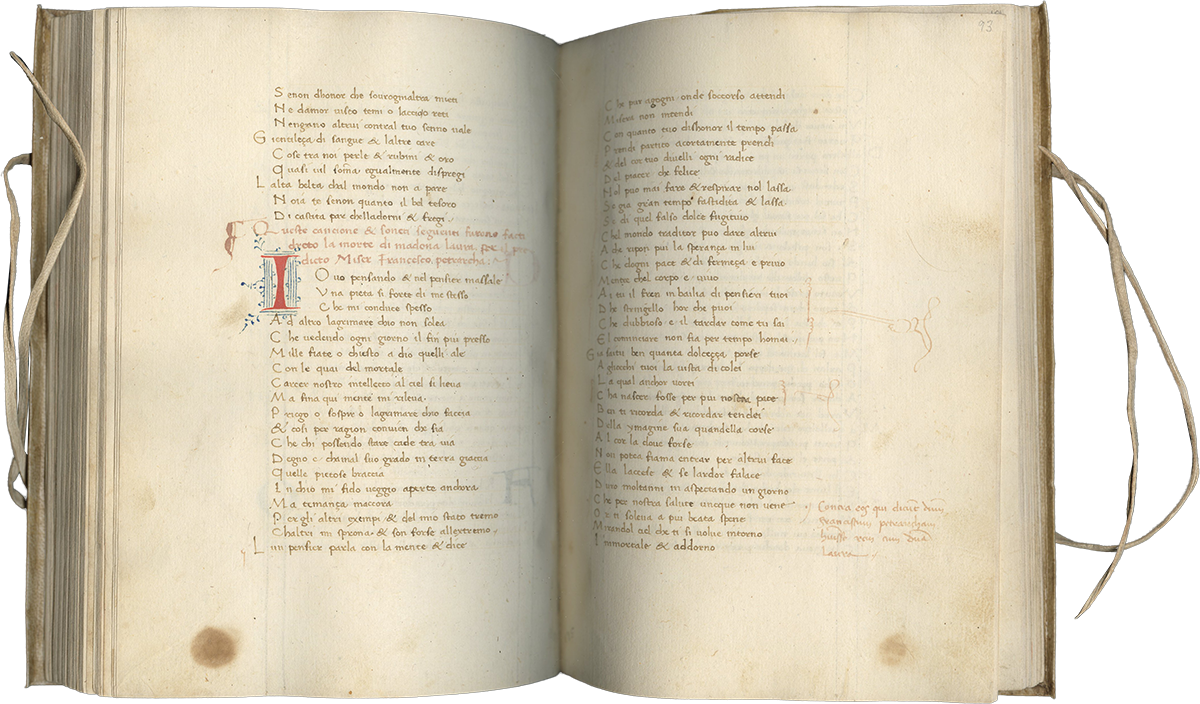 Senon dhonor che sourogmaltra mieti
Ne damor uisco temi o lacci o reti
Nengano altrui contral tuo senno uale
Gientileça di sangue & laltre care
Cose tra noi perle & rubini & oro
Quasi uil soma egualmente dispregi
Lalta belta chal mondo non a pare
Noia te senon quanto il bel tesoro
Di castita par chelladorni & fregi.
Queste cancione & soneti seguenti furono facti
dreto la morte di madona laura per il pre
dicto Miser Francesco petrarcha:
IO uo pensando & nel pensier massale
Vna pieta si forte di me stesso
Che mi conduce spesso
Ad altro lagrimare chio non solea
Che uedendo ogni giorno il fin piu presso
Mille fiate o chiesto a dio quelli ale
Con le quai del mortale
Carcer nostro intellecto al ciel si lieua
Ma fina qui mente mi rileua.
Priego o sospir o lagrimare chio faccia
& cosi per ragion conuien che sia
Che chi possendo stare cade tra uia
Degno e chamal suo grado in terra giaccia
Quelle pietose braccia
In chio mi fido ueggio aperte anchora
Ma temança maccora
Per gli altri exempi & del mio stato tremo
Chaltri mi sprona & son forse allextremo.
Lun pensier parla con la mente & dice
93
Che pur agogni onde soccorso attendi
Misera non intendi
Con quanto tuo dishonor il tempo passa
Prendi partito acortamente prendi
& del cor tuo diuelli ogni radice
Del piacer che felice
Nol puo mai fare & respirar nol lassa
Se gia gran tempo fastidita & lassa
Se di quel falso dolce fugitiuo
Chel mondo traditor puo dare altrui
A che ripon piu la sperança in lui
Che dogni pace & di fermeça e priuo
Mentre chel corpo e uiuo
Ai tu il fren in bailia di pensieri tuoi
Dhe stringello hor che puoi
Che dubbioso e il tardar come tu sai
El cominciare non fia per tempo homai.
Gia saitu ben quanta dolcecça porse
Aghocchi tuoi la uista di colei
La qual anchor uorei
Cha nascer fosse per piu nostra pace
Ben ti ricorda & ricordar tendei
Della ymagine sua quandella corse
Al cor la doue forse
Non potea fiama entrar per altrui face
Ella laccese & se lardor falace
Duro moltanni in aspectando un giorno
Che per nostra salute unqque non uene
Or ti solleua a piu beata spene
Mirandol ciel che ti si uolue intorno
Immortale & addorno
Contra eos qui dicunt dnm
franciscum petrarcham
huisse rem cum dna
Laura